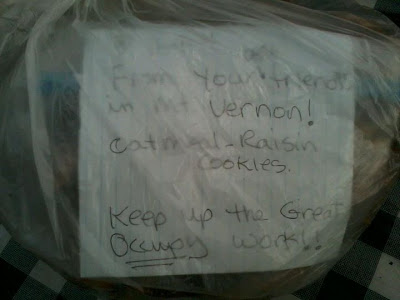 From your friends
in mt Vernon!
oatmeal-Raisin
cookies.
Keep up the Great
Occupy work!!